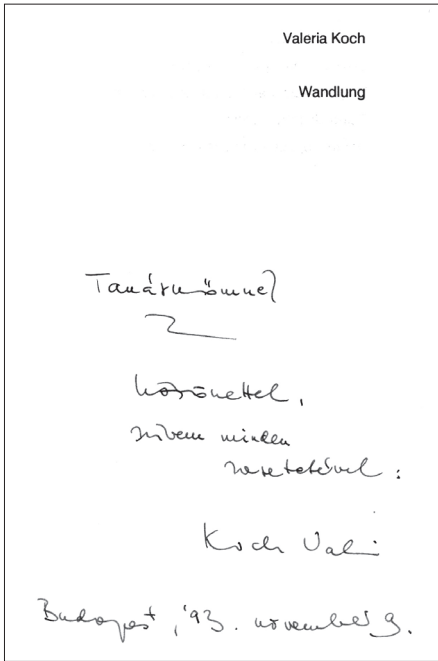 Valeria Koch
Wandlung
Tanárnőmnek
köszönettel,
szívem minden
szeretetével:
Koch Vali
Budapest, '93. november 9.